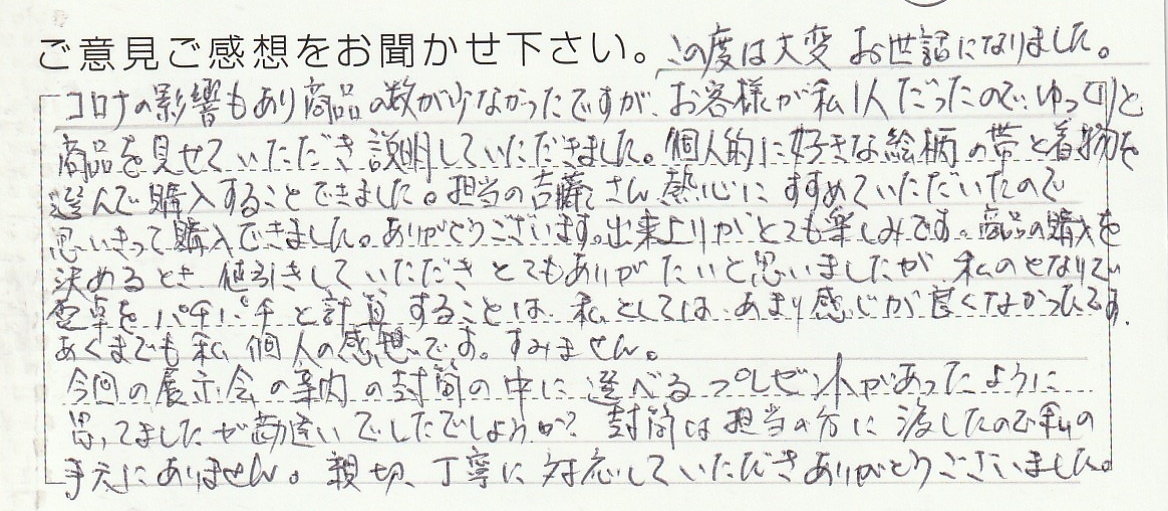 ご意見ご感想をお聞かせ下さい。この度は大変お世話になりました。
コロナの影響もあり商品の数が少なかったですが、お客様が私1人だったので、ゆっくりと
商品を見せていただき説明していただきました。個人的に好きな絵柄の帯と着物を
選んで購入することできました。担当の さん熱心にすすめていただいたので
思いきって購入できました。ありがとうございます。出来上りがとても楽しみです。商品の購入を
決めるとき、値引きしていただきとてもありがたいと思いましたが、私のとなりで
電卓をパチパチと計算することは、私としては、あまり感じが良くなかったです。
あくまでも私個人の感想です。すみません。
今回の展示会の案内の封筒の中に選べるプレゼントがあったように
思ってましたが勘違いでしたでしょうか?封筒は担当の方に渡したので私の
手元にありません。親切、丁寧に対応していただきありがとうございました。